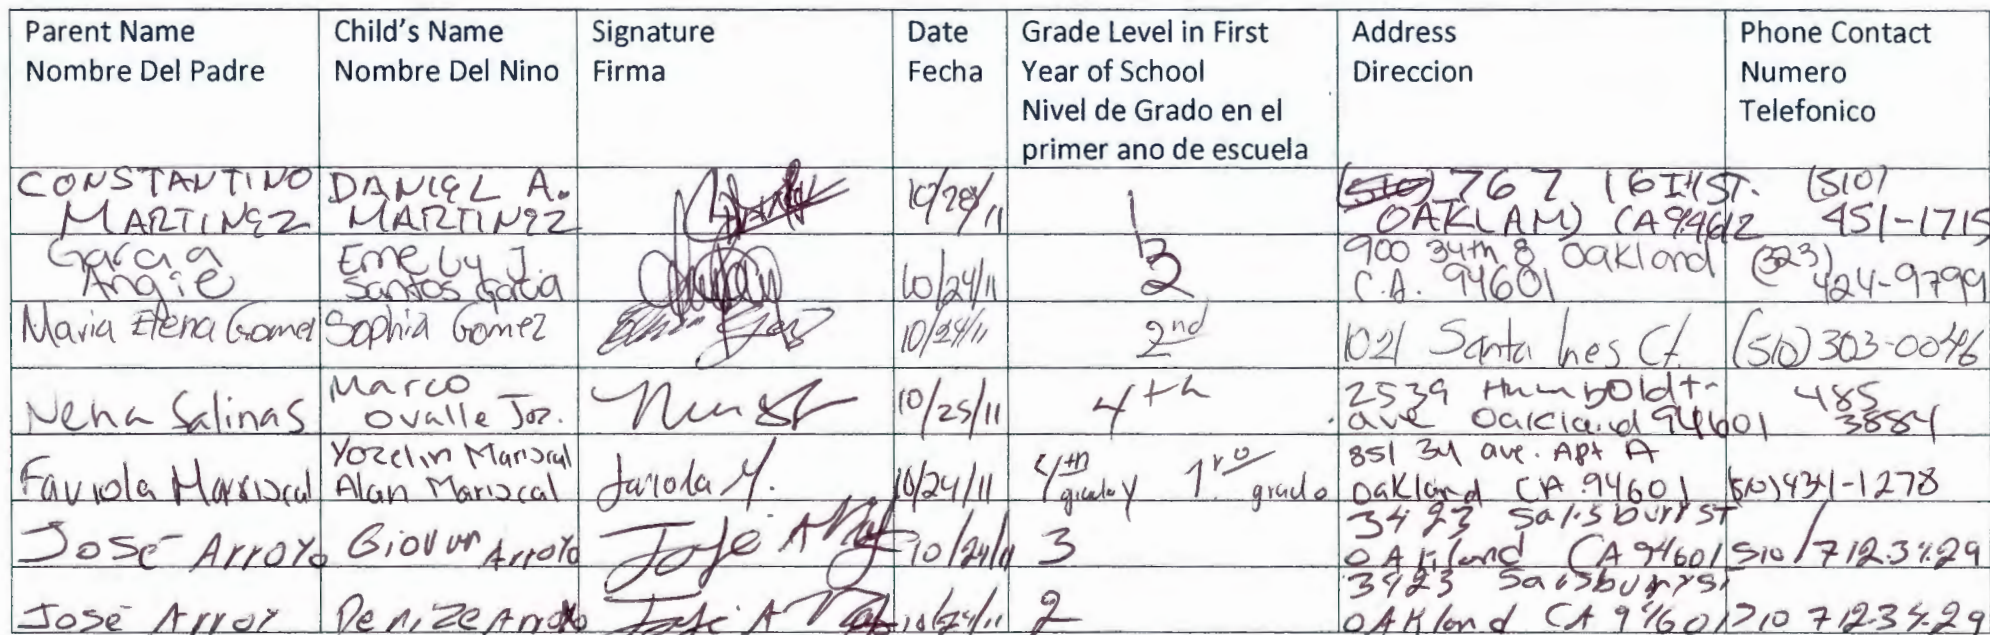 Parent Name
Nombre Del Padre
Child's Name
Nombre Del Nino
Signature
Firma
Date
Fecha
Grade Level in First
Year of School
Nivel de Grado en el
primer ano de escuela
Address
Direccion
Phone Contact
Numero
Telefonico
CONSTANTINO
MARTINEZ
DANIEL A.
MARTINEZ
10/28/11
1
767 16TH ST.
OAKLAND CA 94612
(510)
451-1715
Garcia
Angie
Emely J.
Santos Garcia
10/24/11
2
900 34th Oakland
C.A. 94601
(323)
424-9799
Maria Elena Gomez
Sophia Gomez
10/24/11
2nd
1021 Santa Ines Ct.
(510) 303-0046
Neha Salinas
Marco
Ovalle Joz.
10/25/11
4th
2539 Humboldt-
ave Oakland 94601
485
3884
Faviola Mariscal
Yozelin Mariscal
Alan Mariscal
Faviola M.
10/24/11
4th grado y 1.ro grado
851 34 ave. Apt A
Oakland CA 94601
(510) 434-1278
José Arroyo
Giovan Arroyo
José A
10/24/11
3
3423 Salisbury ST
OAKland CA 94601
510/712.34.29
José Arroy
Denize Arroyo
José A
10/24/11
2
3423 Salsbury st
OAKland CA 94601
510 712.34.29